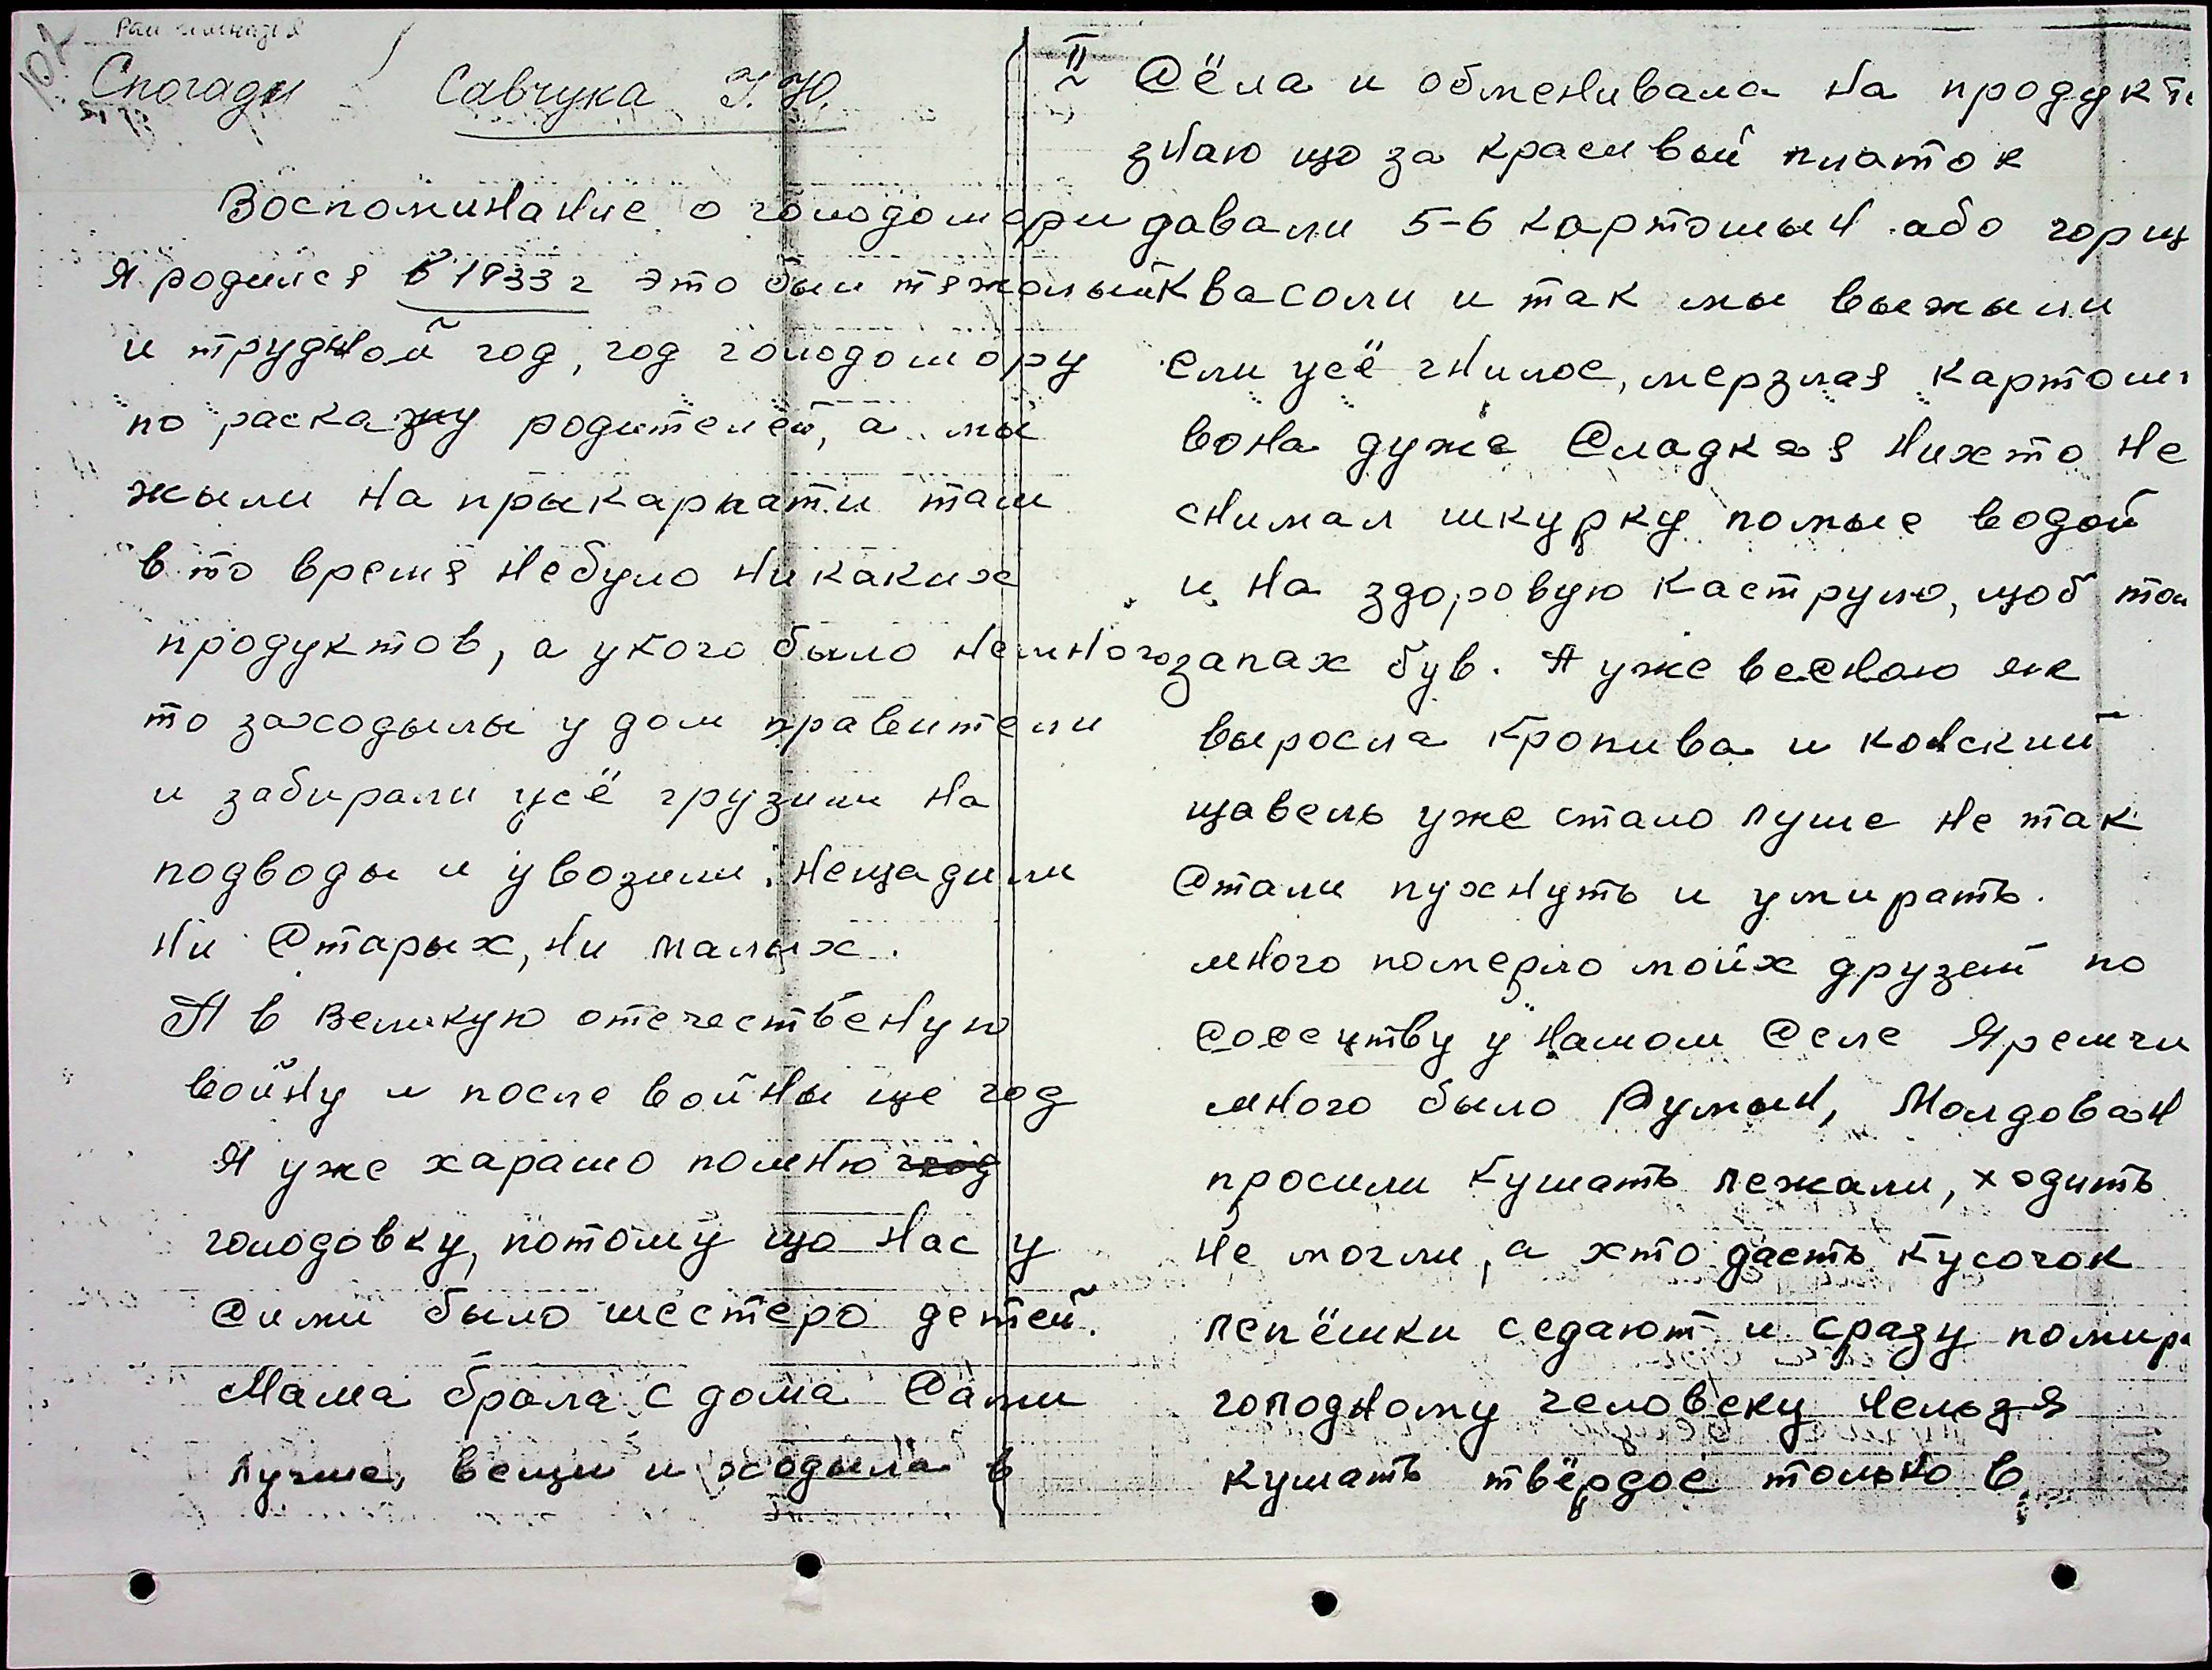 Спогади Савчука І. Ю.
Воспоминание о голодомори
Я родился в 1933 г это был тяжолый
и трудной год, год голодомору
по расказу родителей, а мы
жыли на прыкарпати там
в то время небуло никаких
продуктов, а укого было немного
то заходылы у дом правители
и забирали усё грузили на
подводы и увозили, нещадили
ни старых, ни малых.
А в Великую отечественую
войну и после войны ще год
Я уже харашо помню
голодовку, потому що нас у
сими было шестеро детей.
Мама брала с дома сами
лучше, вещи и ходыла в
II
сёла и обменивала на
знаю що за красивый платок
давали 5-6 картошын або
квасоли и так мы выжыли
ели усё гнилое, мерзлая
вона дужа сладкая нихто не
снимал шкурку помые водой
и на здоровую каструлю, щоб
запах був. А уже весною як
выросла кропива и конский
щавель уже стало луше не так
стали пухнуть и умирать.
много померло мойх друзей по
сосецтву у нашом селе Яремчи
много было Румын, Молдован
просили кушать лежали, ходить
не могли, а хто дасть кусочок
лепёшки седают и сразу
голодному человеку нельзя
кушать твёрдое только в